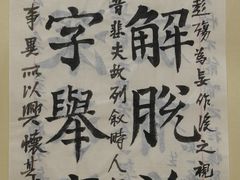 彭殤為妄作後之視
解脫
昔悲夫故列敘時人
字舉
事異所以興懷其